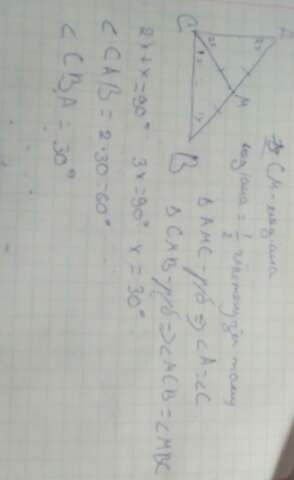 C
A
2x
2x
x
x
M
B
CM - медіана
медіана = 1/2 гіпотенузи тому
Δ AMC - р/б ⇒ ∠A = ∠C
Δ CMB - р/б ⇒ ∠MCB = ∠MBC
2x + x = 90° 3x = 90° x = 30°
∠CAB = 2·30 = 60°
∠CBA = 30°